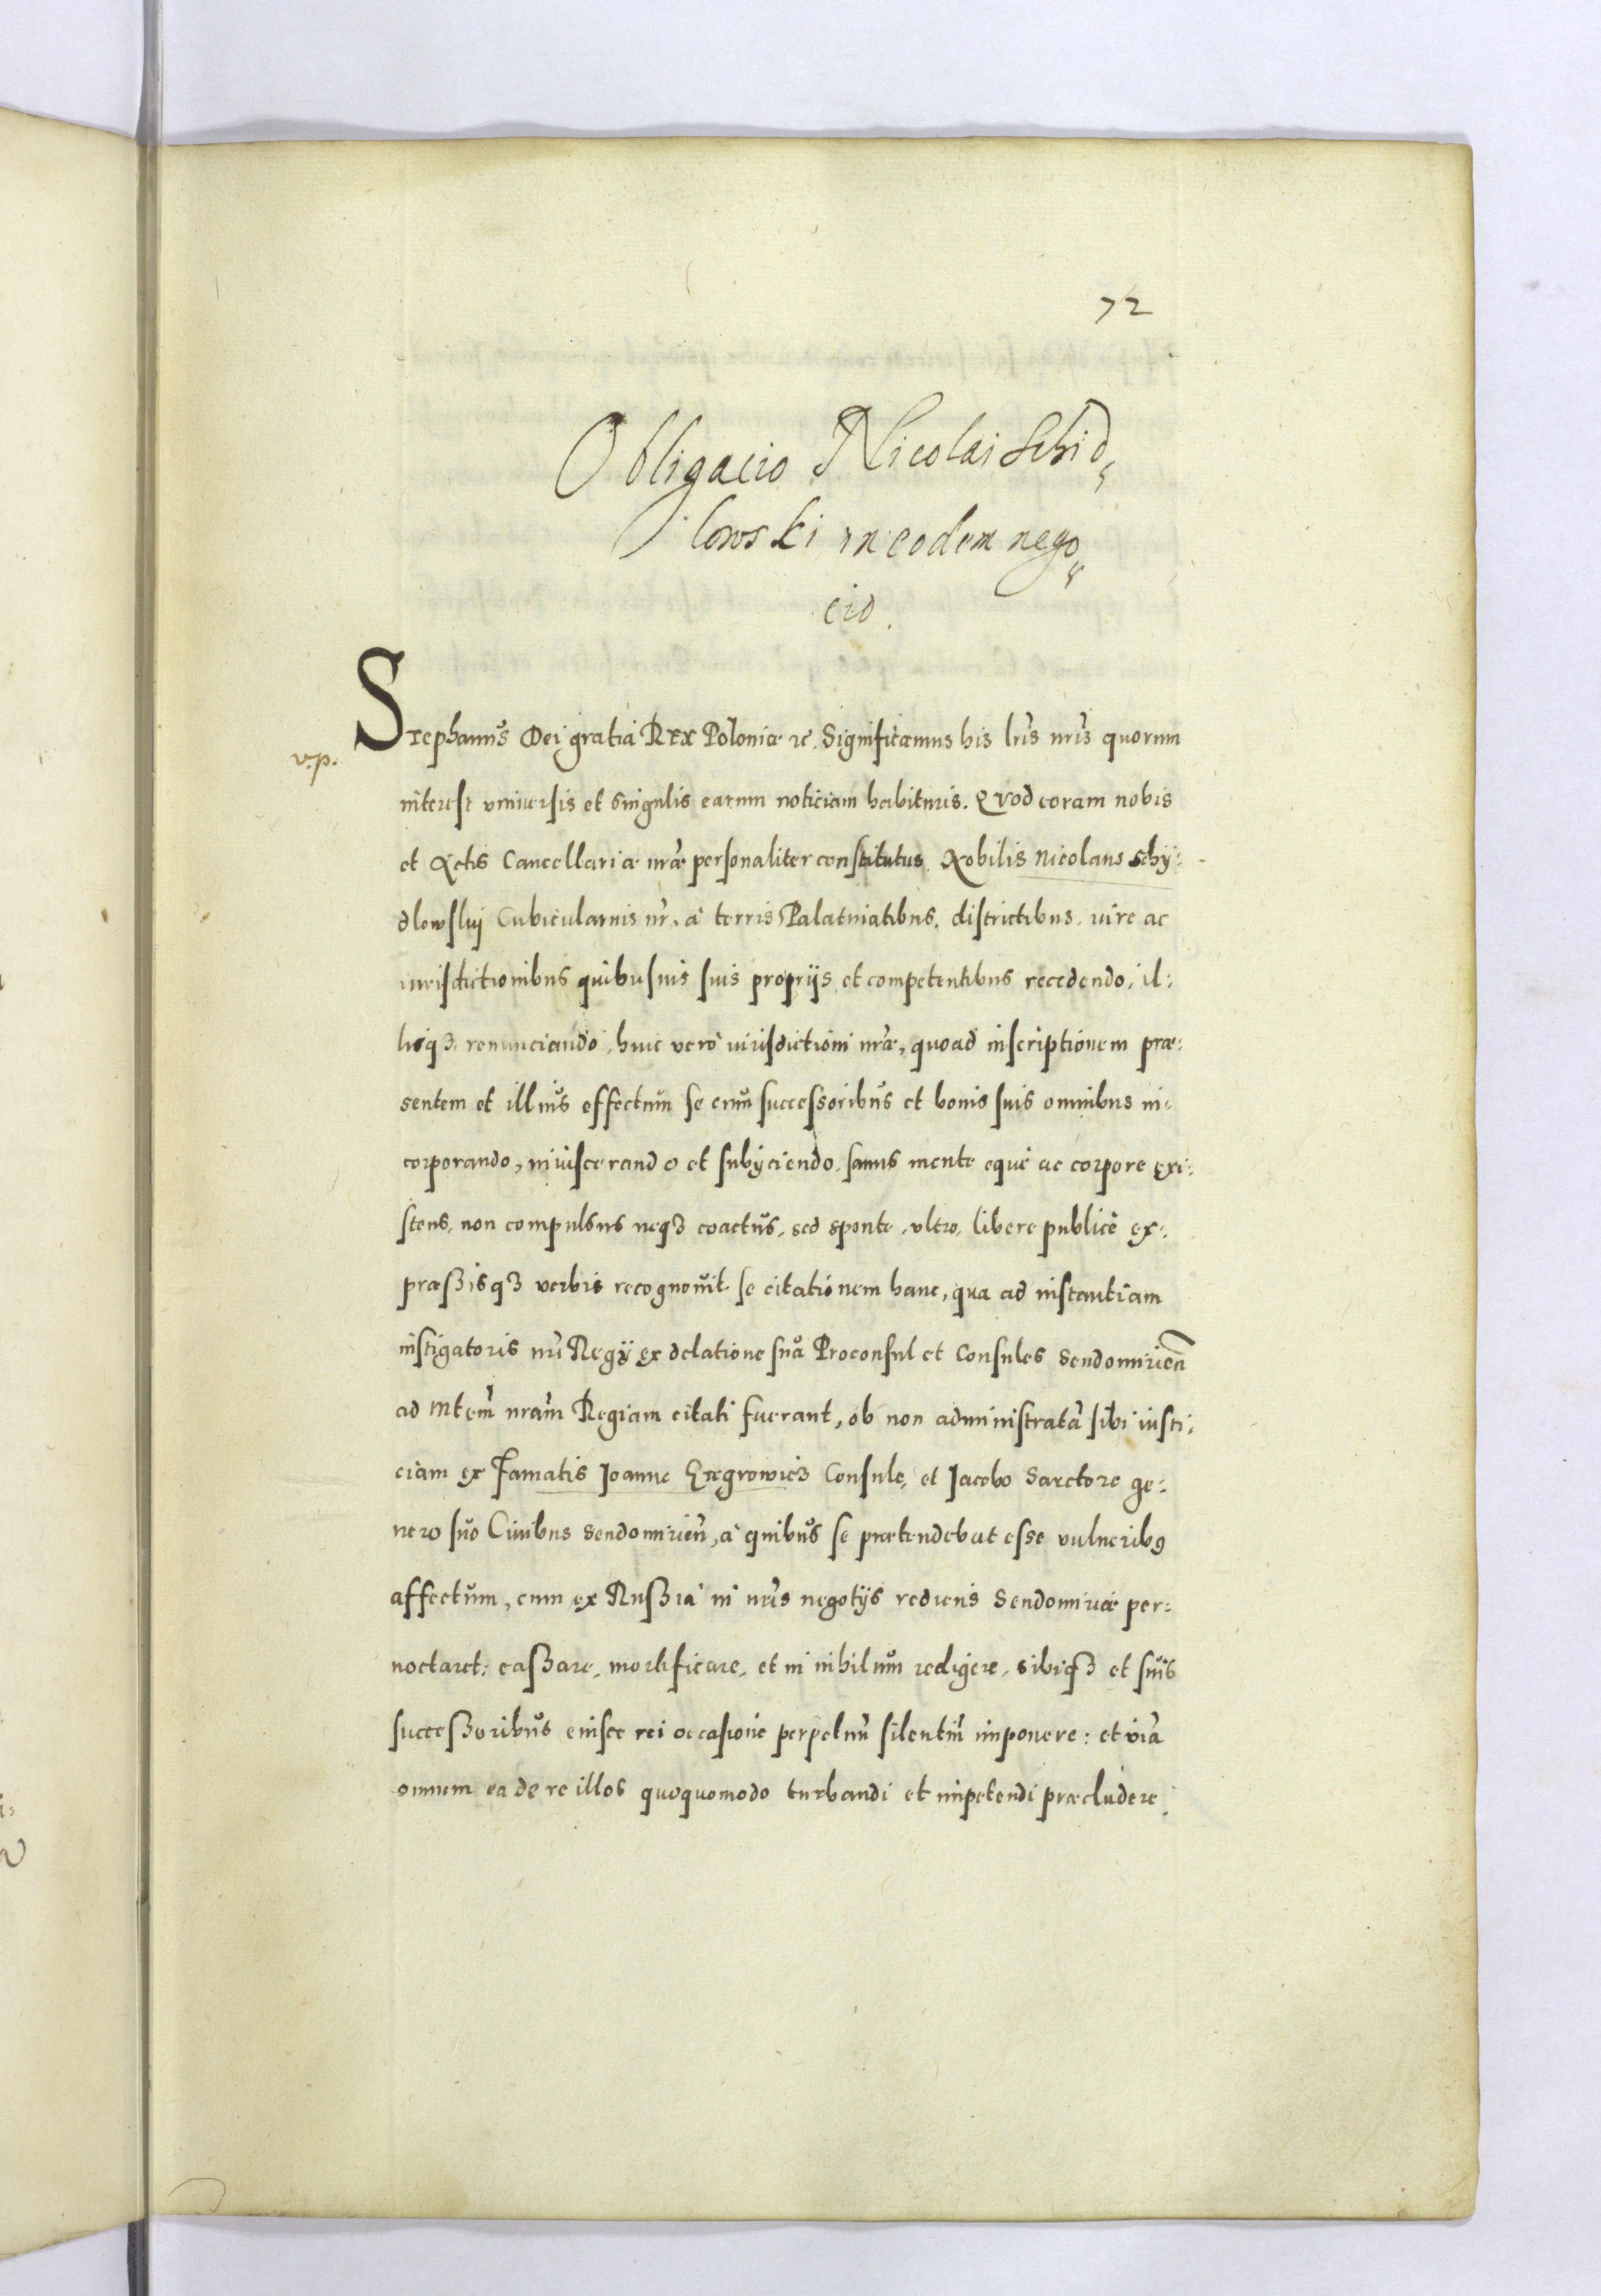 72
Obligacio Nicolai Schid,
lowski in eodem nego,
cio.
Stephanus Dei gratia Rex Poloniæ ꝛc. Significamus his lris nris quorum
v.p.
interest vniuersis et singulis earum noticiam habituris. Quod coram nobis
et Actis Cancellariæ nræ personaliter constitutus Nobilis Nicolaus Schÿ:
dlowskij Cubicularius nr. à terris Palatinatibus, districtibus, iure ac
iurisdictionibus quibusuis suis proprijs et competentibus recedendo, il:
lisqꝫ renunciando, huic vero iurisdictioni nræ, quoad inscriptionem præ:
sentem et illius effectum se cum successoribus et bonis suis omnibus in:
corporando, inuiscerando et subijciendo, sanus mente eque ac corpore exi:
stens, non compulsus neqꝫ coactus, sed sponte, vltro, libere publicè ex:
præssisqꝫ verbis recognouit se citationem hanc, qua ad instantiam
instigatoris nri Regij ex delatione sua Proconsul et Consules Sendomirien̄
ad Mtem nram Regiam citati fuerant, ob non administratã sibi iusti:
ciam ex Famatis Joanne Gregrowicz Consule, et Jacobo Sartore ge:
nero suo Ciuibus Sendomirien̄, à quibus se prætendebat esse vulneribꝰ
affectum, cum ex Russia in nris negotijs rediens Sendomiriæ per:
noctaret: cassare, mortificare, et in nihilum redigere, sibiqꝫ et suis
successoribus eiusce rei occasione perpetuũ silentiũ imponere: et viã
omnem ea de re illos quoquomodo turbandi et impetendi præcludere,